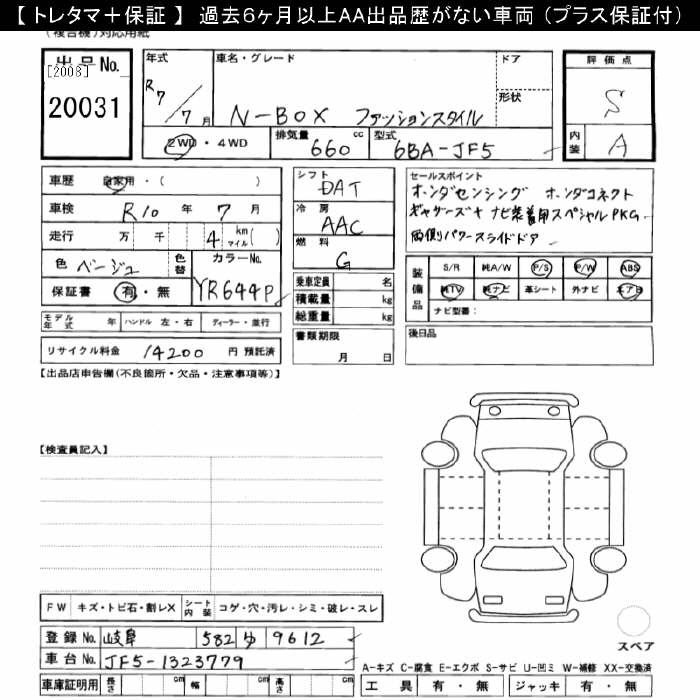 【 トレタマ＋保証 】 過去６ヶ月以上ＡＡ出品歴がない車両（プラス保証付）
(複合機)対応用紙
出品No.
[2008]
20031
年式
R7/7月
車名・グレード
N-BOX ファッションスタイル
ドア
形状
評価点
S
内装
A
2WD・4WD
排気量 660 cc
型式 6BA-JF5
車歴 自家用・( )
車検 R10年7月
走行 万 千 4 km マイル( )
色 ベージュ
色替
カラーNo. YR644P
保証書 有・無
モデル年式 年 ハンドル 左・右 ディーラー・並行
リサイクル料金 14200 円 預託済
シフト
DAT
冷房
AAC
燃料
G
乗車定員 名
積載量 kg
総重量 kg
書類期限
月 日
セールスポイント
ホンダセンシング ホンダコネクト
ギャザーズ8 ナビ装着用スペシャルPKG
両側パワースライドドア
装備品
S/R 純A/W P/S P/W ABS
純TV 純ナビ 革シート 外ナビ 本アB
ナビ型番：
後日品
【出品店申告欄(不良箇所・欠品・注意事項等)】
【検査員記入】
FW キズ・トビ石・割レX シート内装 コゲ・穴・汚レ・シミ・破レ・スレ
登録No. 岐阜 582 ゆ 9612
車台No. JF5-1323779
車庫証明用 長さ cm 幅 cm 高さ cm
スペア
A-キズ C-腐食 E-エクボ S-サビ U-凹ミ W-補修 XX-交換済
工具 有・無 ジャッキ 有・無